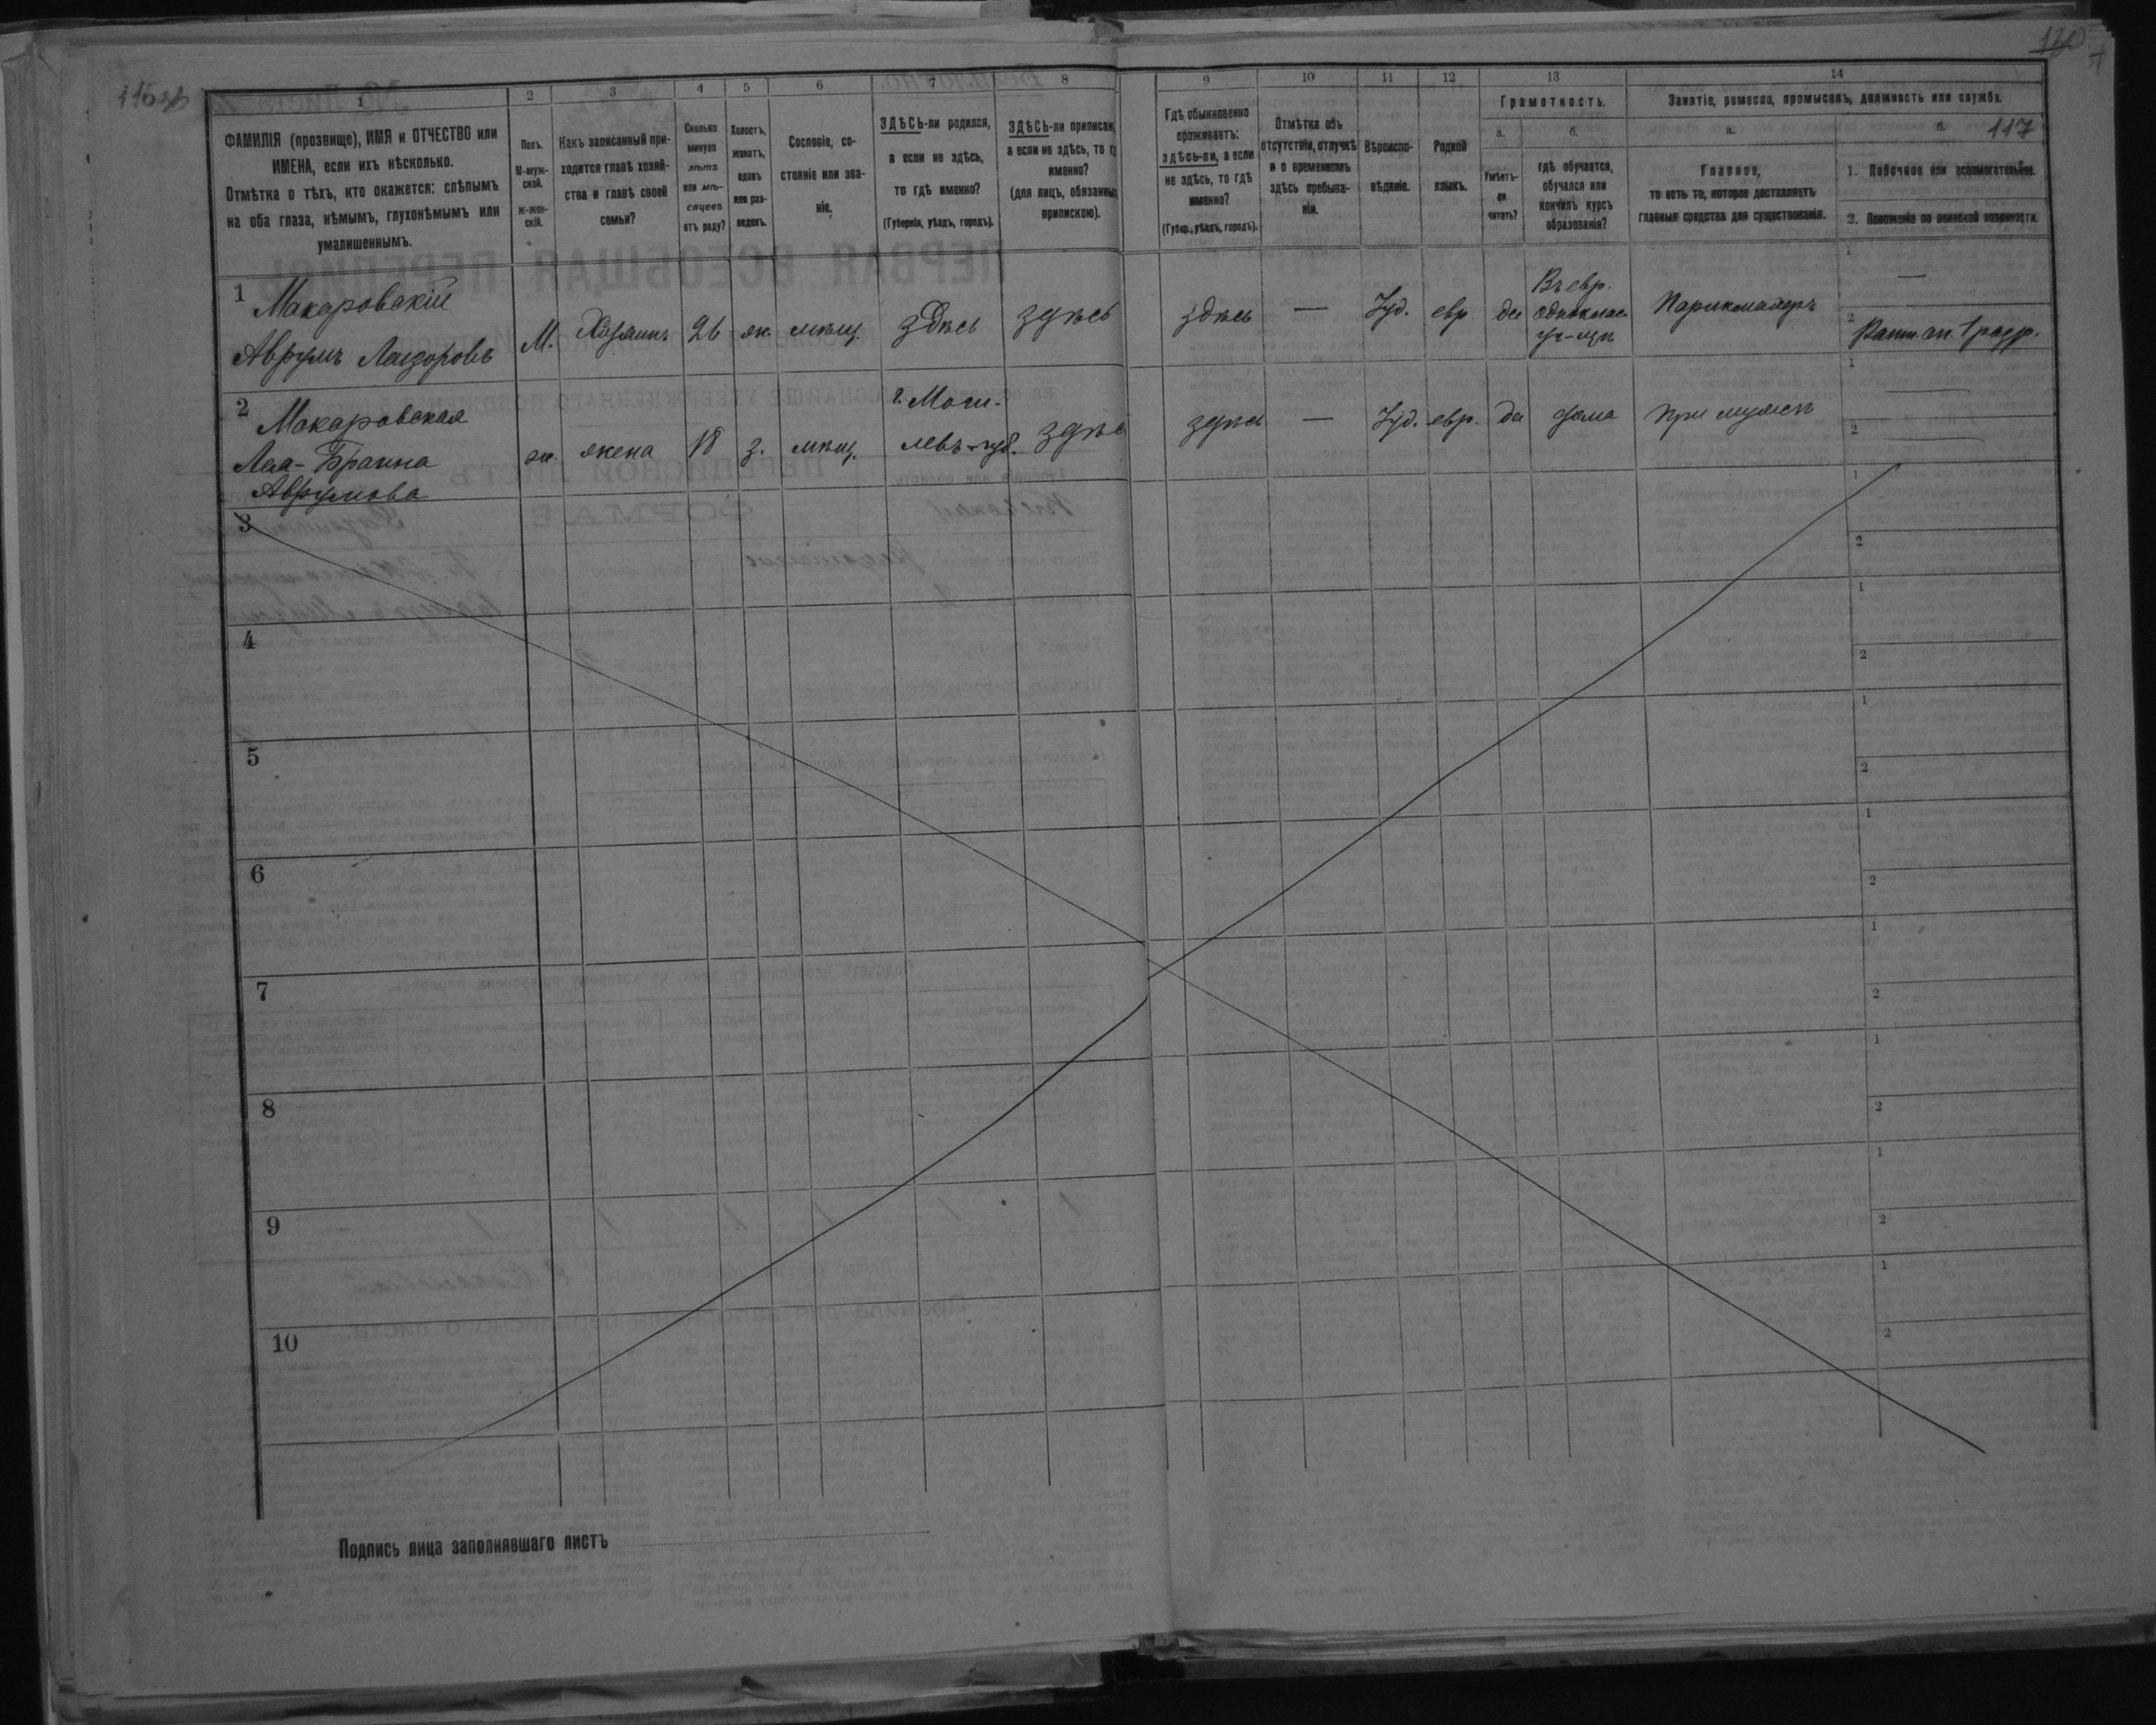 116об
120
117
1
2
3
4
5
6
7
8
9
10
11
12
13
14
ФАМИЛІЯ (прозвище), ИМЯ и ОТЧЕСТВО или
ИМЕНА, если ихъ нѣсколько.
Отмѣтка о тѣхъ, кто окажется: слѣпымъ
на оба глаза, нѣмымъ, глухонѣмымъ или
умалишеннымъ.
Полъ.
М-муж-
ской.
Ж-жен-
скій.
Какъ записанный при-
ходится главѣ хозяй-
ства и главѣ своей
семьи?
Сколько
минуло
лѣтъ
или мѣ-
сяцевъ
отъ роду?
Холостъ,
женатъ,
вдовъ
или раз-
веденъ.
Сословіе, со-
стояніе или зва-
ніе.
ЗДѢСЬ-ли родился,
а если не здѣсь,
то гдѣ именно?
(Губернія, уѣздъ, городъ).
ЗДѢСЬ-ли приписан
а если не здѣсь, то г
именно?
(для лицъ, обязанных
припискою).
Гдѣ обыкновенно
проживаетъ:
здѣсь-ли, а если
не здѣсь, то гдѣ
именно?
(Губер., уѣздъ, городъ).
Отмѣтка объ
отсутствіи, отлучкѣ
и о временномъ
здѣсь пребыва-
ніи.
Вѣроиспо-
вѣданіе.
Родной
языкъ.
Грамотность.
а.
б.
Умѣетъ-
ли
читать?
гдѣ обучается,
обучался или
кончилъ курсъ
образованія?
Занятіе, ремесло, промыселъ, должность или служба.
а.
б.
Главное,
то есть то, которое доставляетъ
главныя средства для существованія.
1. Побочное или вспомогательное.
2. Положеніе по воинской повинности.
1 Макаровскій
Аврумъ Лейзоровъ
М. Хозяинъ 26 ж. мѣщ. здѣсь здѣсь здѣсь — Іуд. евр. да
Въ евр.
однокласс.
уч-щѣ
Парикмахеръ
1 —
2 Ратн. оп. 1 разр.
2 Макаровская
Лея-Браина
Аврумова
ж. жена 18 з. мѣщ.
г. Моги-
левъ-губ.
здѣс здѣсь — Іуд. евр. да дома При мужѣ
1 —
2 —
3
4
5
6
7
8
9
10
Подпись лица заполнявшаго листъ